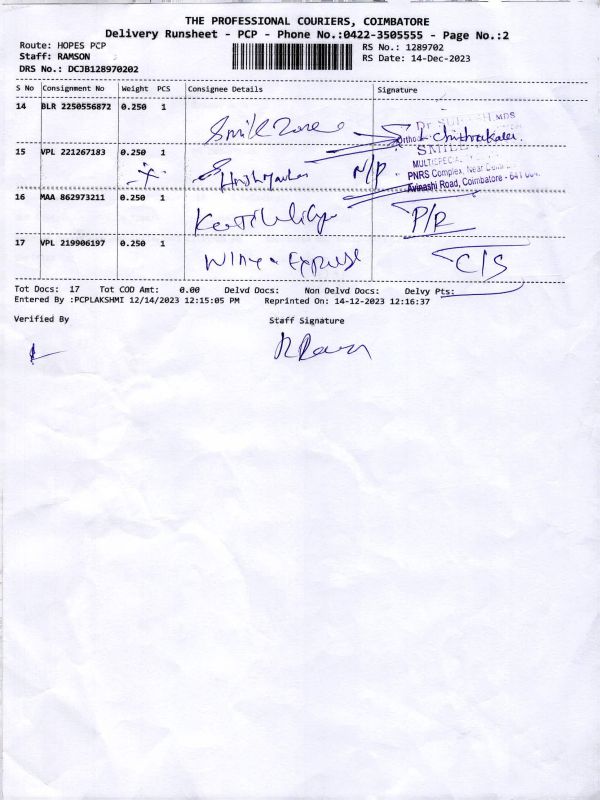 THE PROFESSIONAL COURIERS, COIMBATORE
Delivery Runsheet - PCP - Phone No.:0422-3505555 - Page No.:2
Route: HOPES PCP RS No.: 1289702
Staff: RAMSON RS Date: 14-Dec-2023
DRS No.: DCJB128970202
S No Consignment No Weight PCS Consignee Details Signature
14 BLR 2250556872 0.250 1 Smile Zone L. Chithrakala.
Dr MDS
Ortho
SMILE
MULTISPECIAL
PNRS Complex, Near
Avinashi Road, Coimbatore - 641
15 VPL 221267183 0.250 1 N/P
16 MAA 862973211 0.250 1 P/R
17 VPL 219906197 0.250 1 C/S
Tot Docs: 17 Tot COD Amt: 0.00 Delvd Docs: Non Delvd Docs: Delvy Pts:
Entered By :PCPLAKSHMI 12/14/2023 12:15:05 PM Reprinted On: 14-12-2023 12:16:37
Verified By Staff Signature